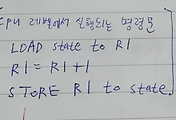 CPU 레벨에서 실행되는 명령문
LOAD state to R1
R1 = R1 + 1
STORE R1 to state.